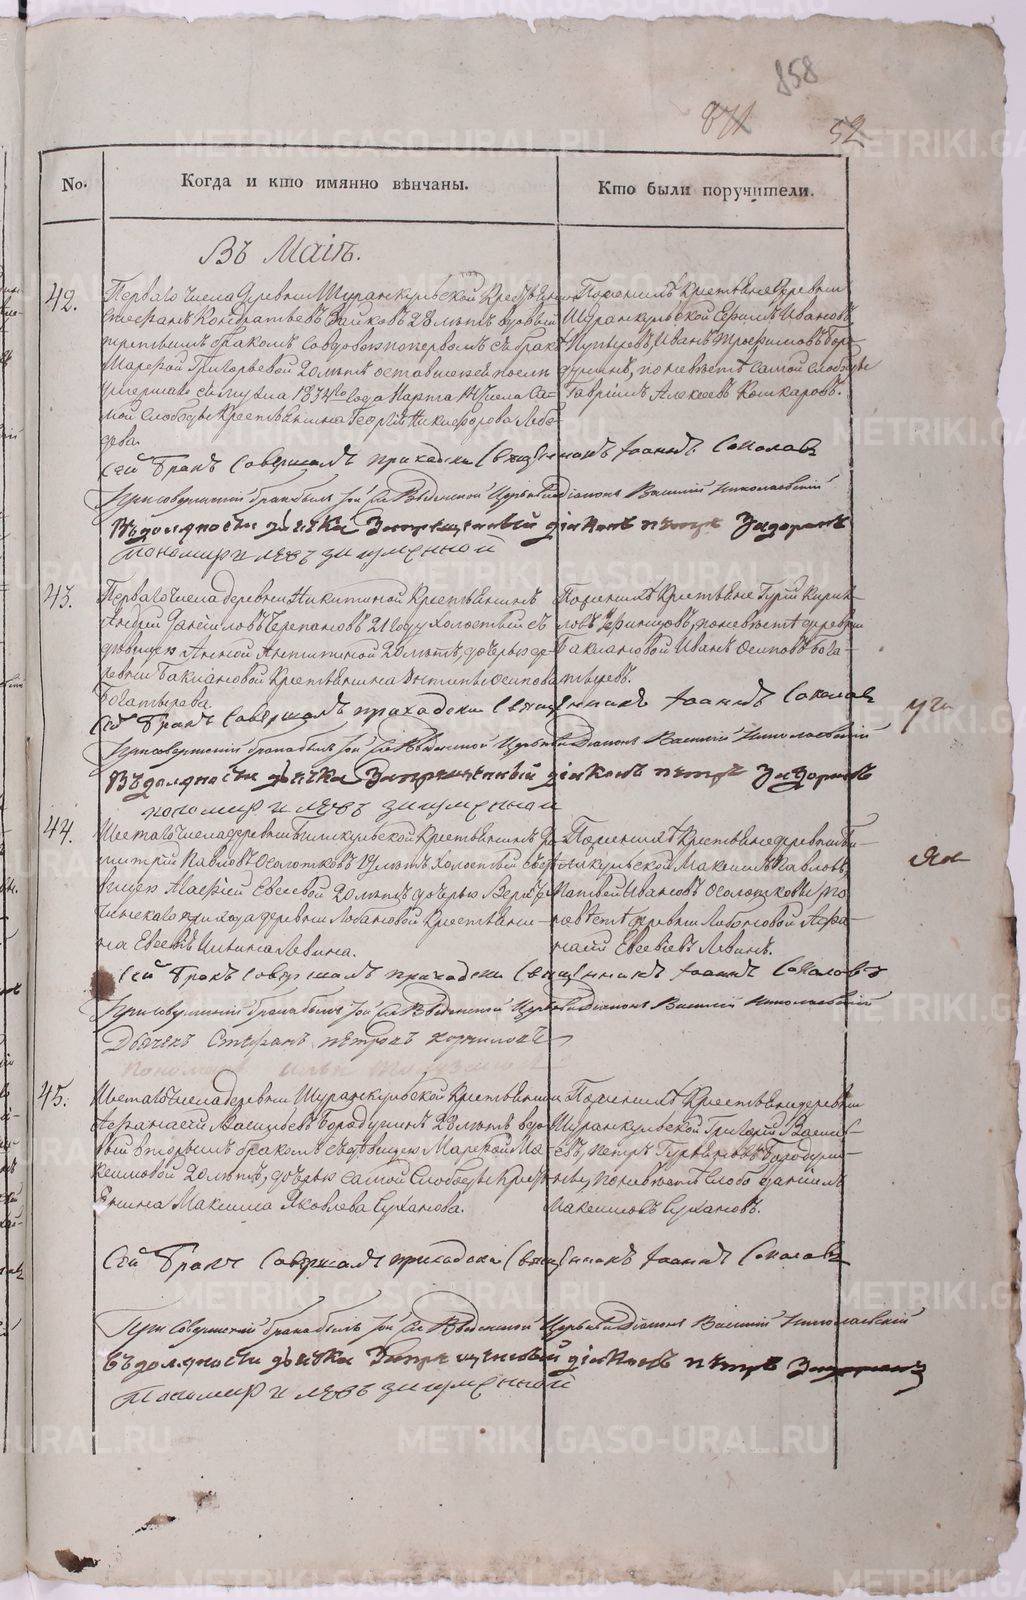 858
871
52
No.
Когда и кто имянно вѣнчаны.
Кто были поручители.
Въ Маiѣ.
42.
Перваго числа деревни Шуранкульской Крестьянинъ
Стефанъ Кондратьевъ Зайковъ 28 лѣтъ вдовый
третьимъ бракомъ со вдовою по первомъ ея бракѣ
Марѳой Григорьевой 20 лѣтъ оставшейся после
умершаго ея мужа 1834го года Марта числа Са-
мой Слободы Крестьянина Георгiя Никифорова Лебе-
дева.
Поручилъ Крестьяне деревни
Шуранкульской Ефимъ Ивановъ
Иванъ Трофимовъ
по невѣстѣ самой слободы
Гаврiилъ Алексеевъ Кошкаровъ.
Сей бракъ совершалъ приходски священникъ Iоаннъ Соколовъ
При совершенiи брака былъ той же Введенской Церкви Дiаконъ Василiй Николаевскiй
Въ должности дьячка Запрещенный дiаконъ Петръ Задоринъ
Пономарь Левъ Загуменной
43.
Перваго числа деревни Никитиной Крестьянинъ
Андрей Данiиловъ Черепановъ 21 году холостый съ
дѣвицею Анной Антипиной 20 лѣтъ, дочерью де-
ревни Баклановой Крестьянина Антипы Осипова
Богатырева.
Поручилъ Крестьяне Гурiй Кирил-
ловъ по невѣстѣ деревни
Баклановой Иванъ Осиповъ Бога-
тыревъ.
Сей бракъ совершалъ приходски священникъ Iоаннъ Соколовъ
При совершенiи брака былъ той же Введенской Церкви Дiаконъ Василiй Николаевскiй
Въ должности дьячка Запрещенный дiаконъ Петръ Задоринъ
пономарь Левъ Загуменной
44.
Шестаго числа деревни Биликульской Крестьянинъ Ди-
митрiй Павловъ Осолотковъ 19 лѣтъ холостый съ дѣ-
вицею Марѳiей Евсевой 20 лѣтъ дочерью
прихода деревни Лобановой Крестьяни-
на Евсевiя Левина.
Поручилъ Крестьяне деревни Би-
ликульской Максимъ Павловъ,
Матвей Ивановъ Осолотковы, по
невѣстѣ деревни Лобановой Афа-
насiй Евсевiевъ Левинъ.
Сей бракъ совершалъ приходски священникъ Iоаннъ Соколовъ
При совершенiи брака былъ той же Введенской Церкви Дiаконъ Василiй Николаевскiй
Дьячекъ Стефанъ Петровъ Корниловъ
45.
Шестаго числа деревни Шуранкульской Крестьянинъ
Афанасiй Васильевъ Бородулинъ 23 лѣтъ вдо-
вый вторымъ бракомъ съ дѣвицею Марѳой Ма-
ксимовой 20 лѣтъ, дочерью самой Слободы Кресть-
янина Максима Яковлева Суханова.
Поручилъ Крестьяне деревни
Шуранкульской Григорiй Василь-
евъ, Петръ Гурьяновъ Бородули-
ны, по невѣстѣ слобо Данiилъ
Максимовъ Сухановъ.
Сей бракъ совершалъ приходски священникъ Iоаннъ Соколовъ
При совершенiи брака былъ той же Введенской Церкви Дiаконъ Василiй Николаевскiй
Въ должности дьячка Запрещенный дiаконъ Петръ Задоринъ
Пономарь Левъ Загуменной
METRIKI.GASO-URAL.RU